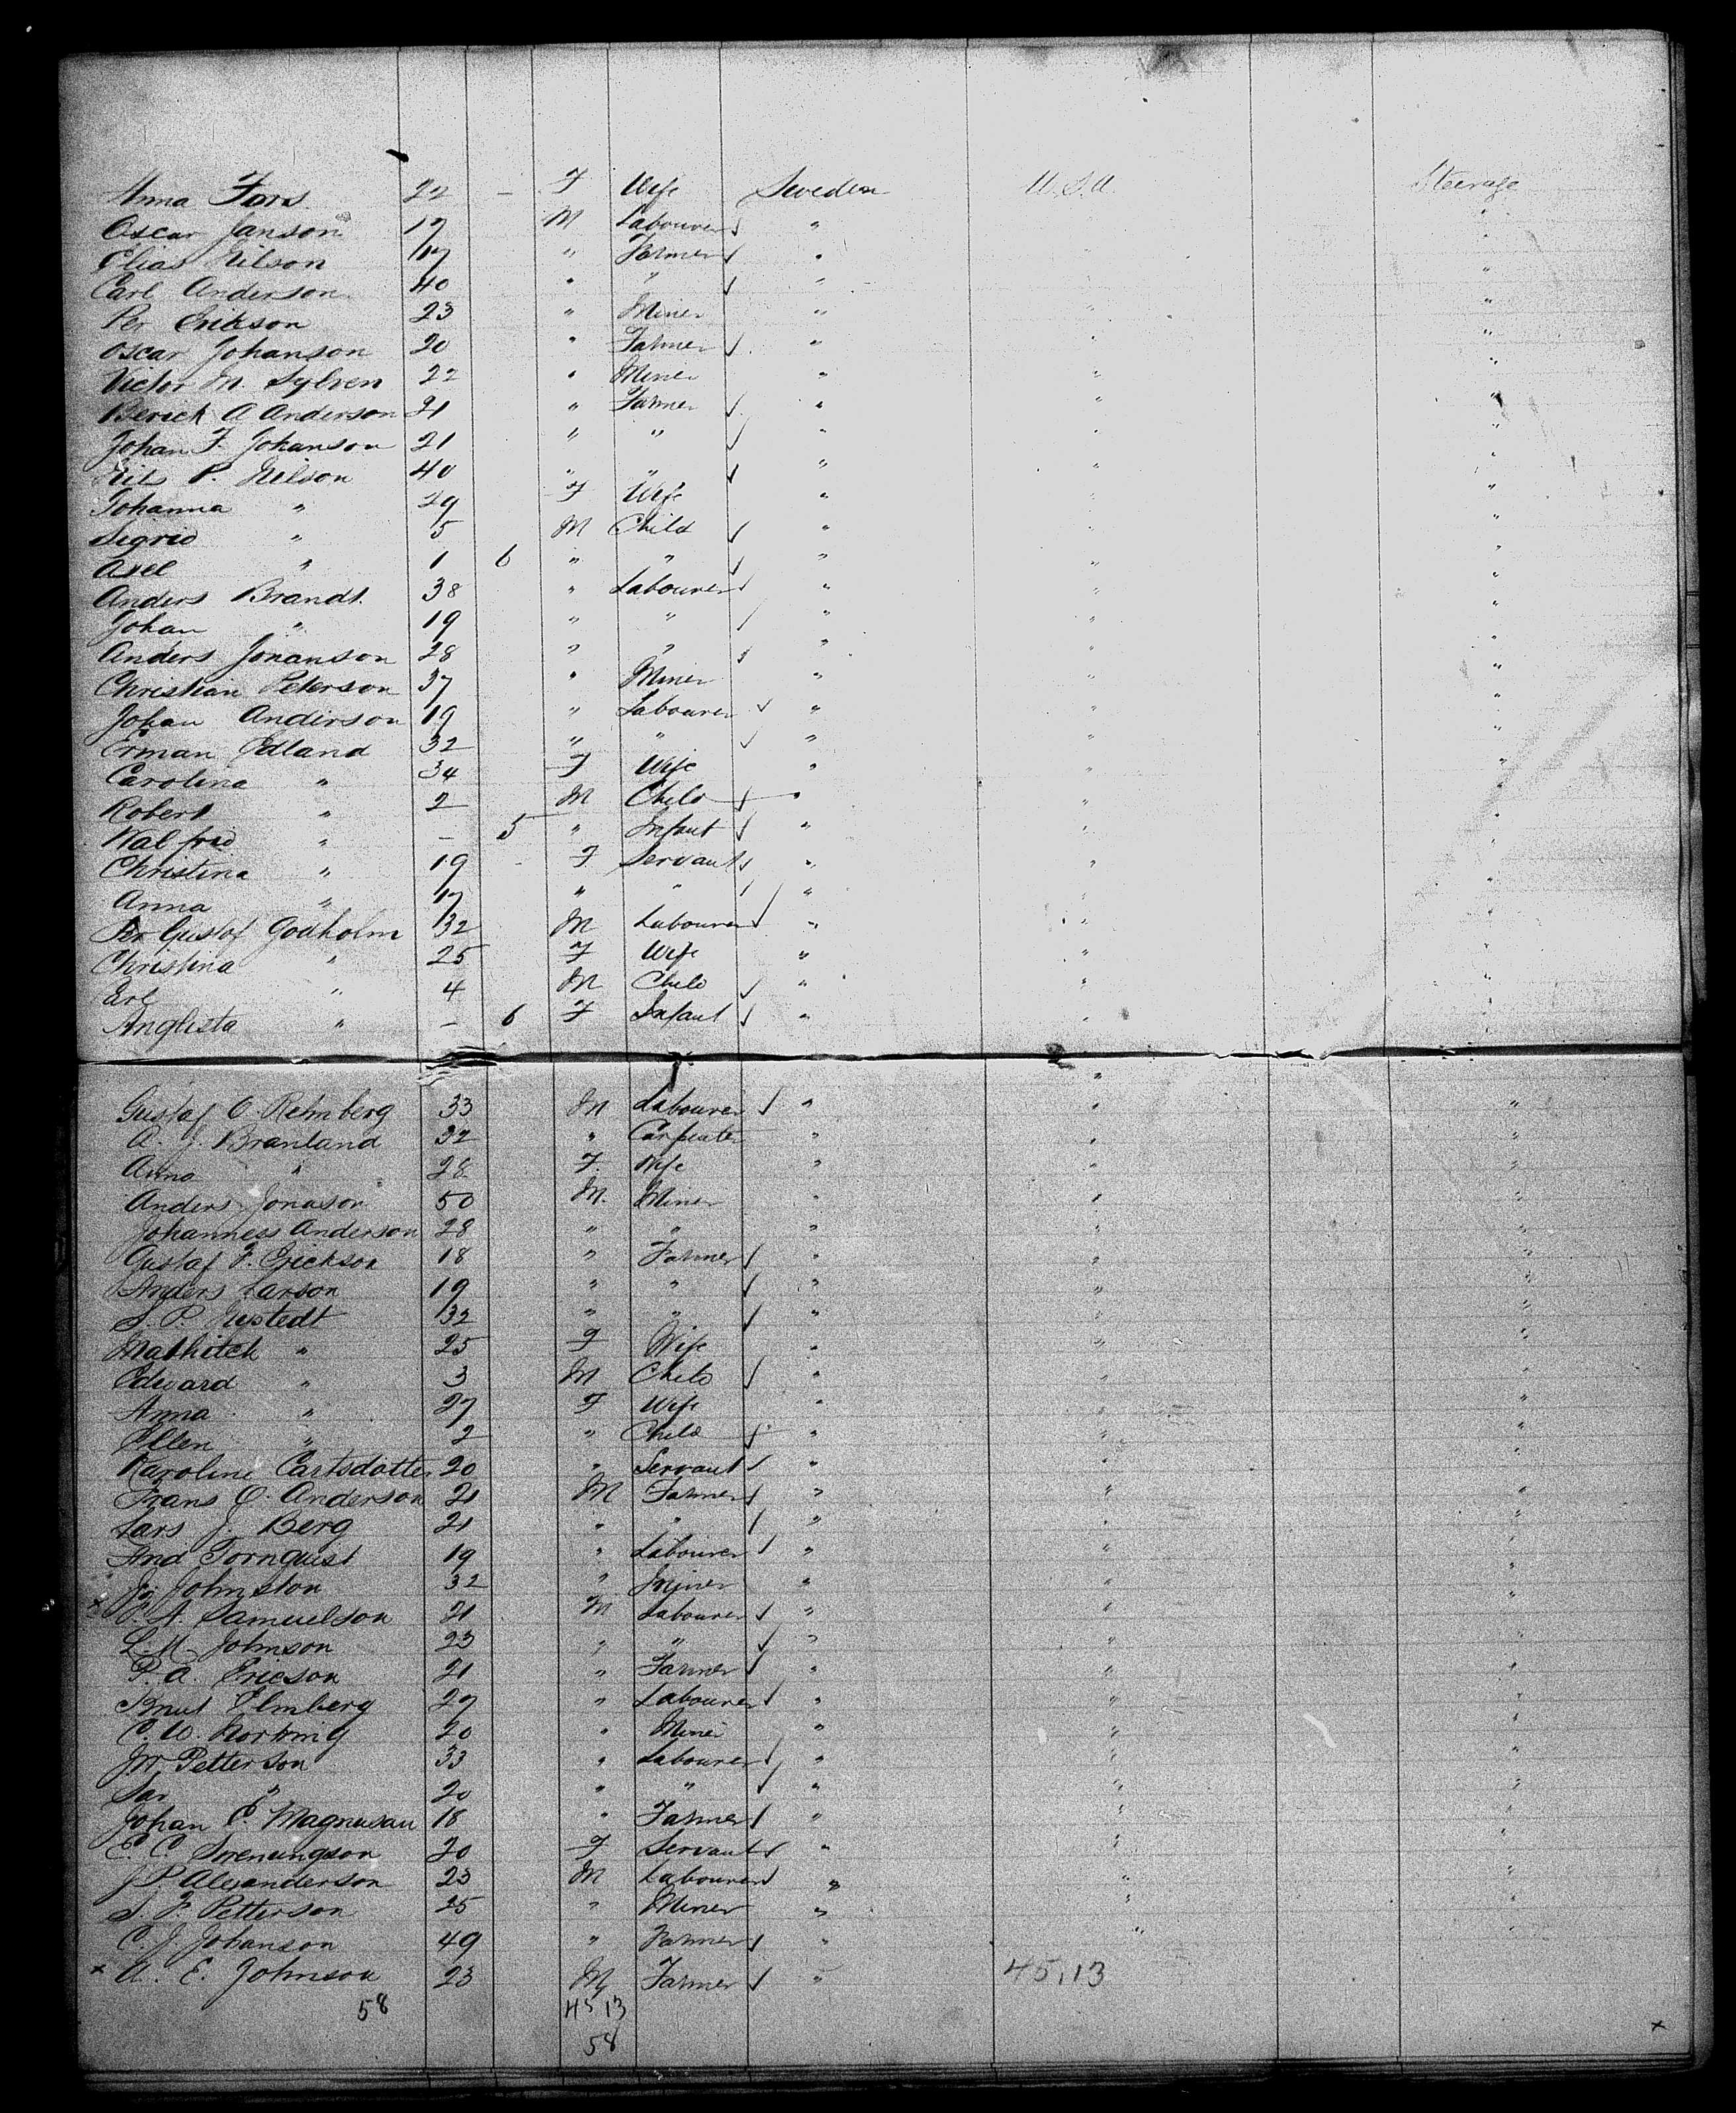 Anna Fors 22 — F Wife Sweden U.S.A Steerage
Oscar Janson 17 M Labourer "
Elias Nilson 17 " Farmer "
Carl Anderson 40 " " "
Per Erikson 23 " Miner " " "
Oscar Johanson 20 " Farmer " " "
Victor M. Sylven 22 " Miner " " "
A Anderson 21 " Farmer " " "
Johan F. Johanson 21 " " " " "
Nils P. Nilson 40 " " " " "
Johanna " 29 F Wife " " "
Sigrid " 5 M Child " " "
Axel " 1 6 " " " " "
Anders Brandt. 38 " Labourer " " "
Johan " 19 " " " " "
Anders Jonanson 28 " " " " "
Christian Peterson 37 " Miner " " "
Johan Anderson 19 " Labourer " " "
Erman Edland 32 " " " " "
Carolina " 34 F Wife " " "
Robert " 2 M Child " " "
Walfrid " — 5 " Infant " " "
Christina " 19 - F Servant " " "
Anna " 17 " " " " "
Per Gustof Godholm 32 M Labourer " " "
Christina " 25 F Wife " " "
" 4 M Child " " "
Anglista " — 6 F Infant " " "
Gustaf O. Rehnberg 33 M Labourer " " "
A. J. Branland 32 " Carpenter " " "
Anna " 28 F. Wife " " "
Anders Jonason 50 M. Miner " " "
Johanness Anderson 28 " " " " "
Gustaf F. Erickson 18 " Farmer " " "
Anders Larson 19 " " " " "
S. P. Nystedt 32 " " " " "
" 25 F Wife " " "
Edward " 3 M Child " " "
Anna " 27 F Wife " " "
Ellen " 2 " Child " " "
Karoline Carlsdotter 20 " Servant " " "
Frans O. Anderson 21 M Farmer " " "
Lars J. Berg 21 " " " " "
And Tornquist 19 " Labourer " " "
Johnston 32 " Miner " " "
x A. Samuelson 21 M Labourer " " "
L. M. Johnson 23 " " " " "
P. A. Ericson 21 " Farmer " " "
Knut Elmberg 27 " Labourer " " "
C. W. 20 " Miner " " "
Petterson 33 " Labourer " " "
Lar " 20 " " " " "
Johan E. Magnusan 18 " Farmer " " "
E. C. Sveningson 20 F Servant " " "
J P Alexanderson 23 M Labourer " " "
S. F. Petterson 25 " Miner " " "
C. J. Johanson 49 " Farmer " " "
x A. E. Johnson 23 M Farmer " 45,13
58 45 13
58 x